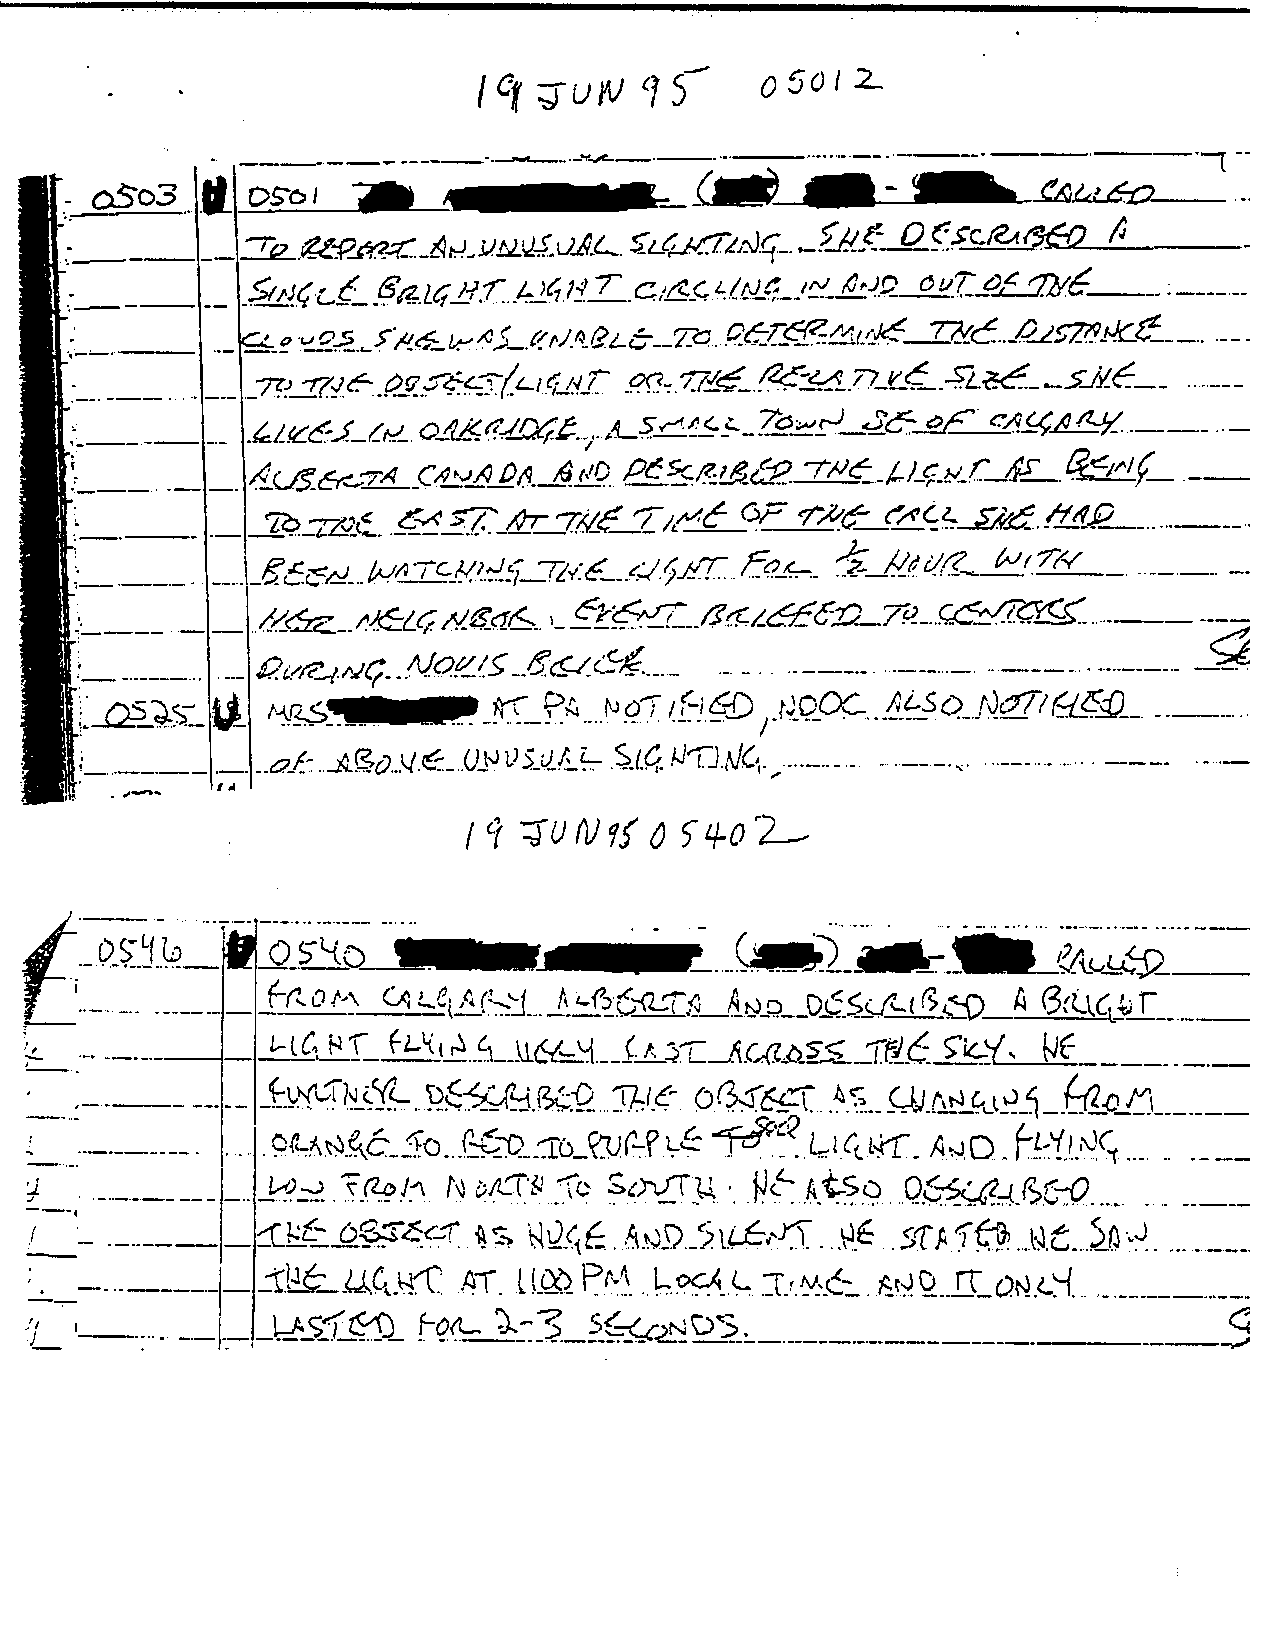 19 JUN 95 0501Z
0503 U 0501 ( ) - CALLED
TO REPORT AN UNUSUAL SIGHTING. SHE DESCRIBED A
SINGLE BRIGHT LIGHT CIRCLING IN AND OUT OF THE
CLOUDS. SHE WAS UNABLE TO DETERMINE THE DISTANCE
TO THE OBJECT/LIGHT OR THE RELATIVE SIZE. SHE
LIVES IN OAKRIDGE, A SMALL TOWN SE OF CALGARY
ALBERTA CANADA AND DESCRIBED THE LIGHT AS BEING
TO THE EAST. AT THE TIME OF THE CALL SHE HAD
BEEN WATCHING THE LIGHT FOR 1/2 HOUR WITH
HER NEIGHBOR. EVENT BRIEFED TO
DURING
0525 U MRS AT PA NOTIFIED, NOOC ALSO NOTIFIED
OF ABOVE UNUSUAL SIGHTING.
19 JUN 95 0540Z
0546 0540 ( ) - CALLED
FROM CALGARY ALBERTA AND DESCRIBED A BRIGHT
LIGHT FLYING VERY FAST ACROSS THE SKY. HE
FURTHER DESCRIBED THE OBJECT AS CHANGING FROM
ORANGE TO RED TO PURPLE TO LIGHT AND FLYING
LOW FROM NORTH TO SOUTH. HE ALSO DESCRIBED
THE OBJECT AS HUGE AND SILENT. HE STATED HE SAW
THE LIGHT AT 1100 PM LOCAL TIME AND IT ONLY
LASTED FOR 2-3 SECONDS.